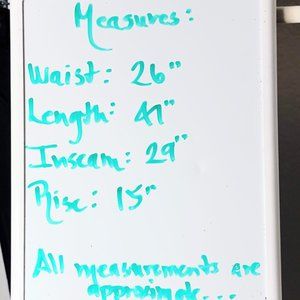 Measures:
Waist: 26"
Length: 41"
Inseam: 29"
Rise: 15"
All measurements are
approximate...